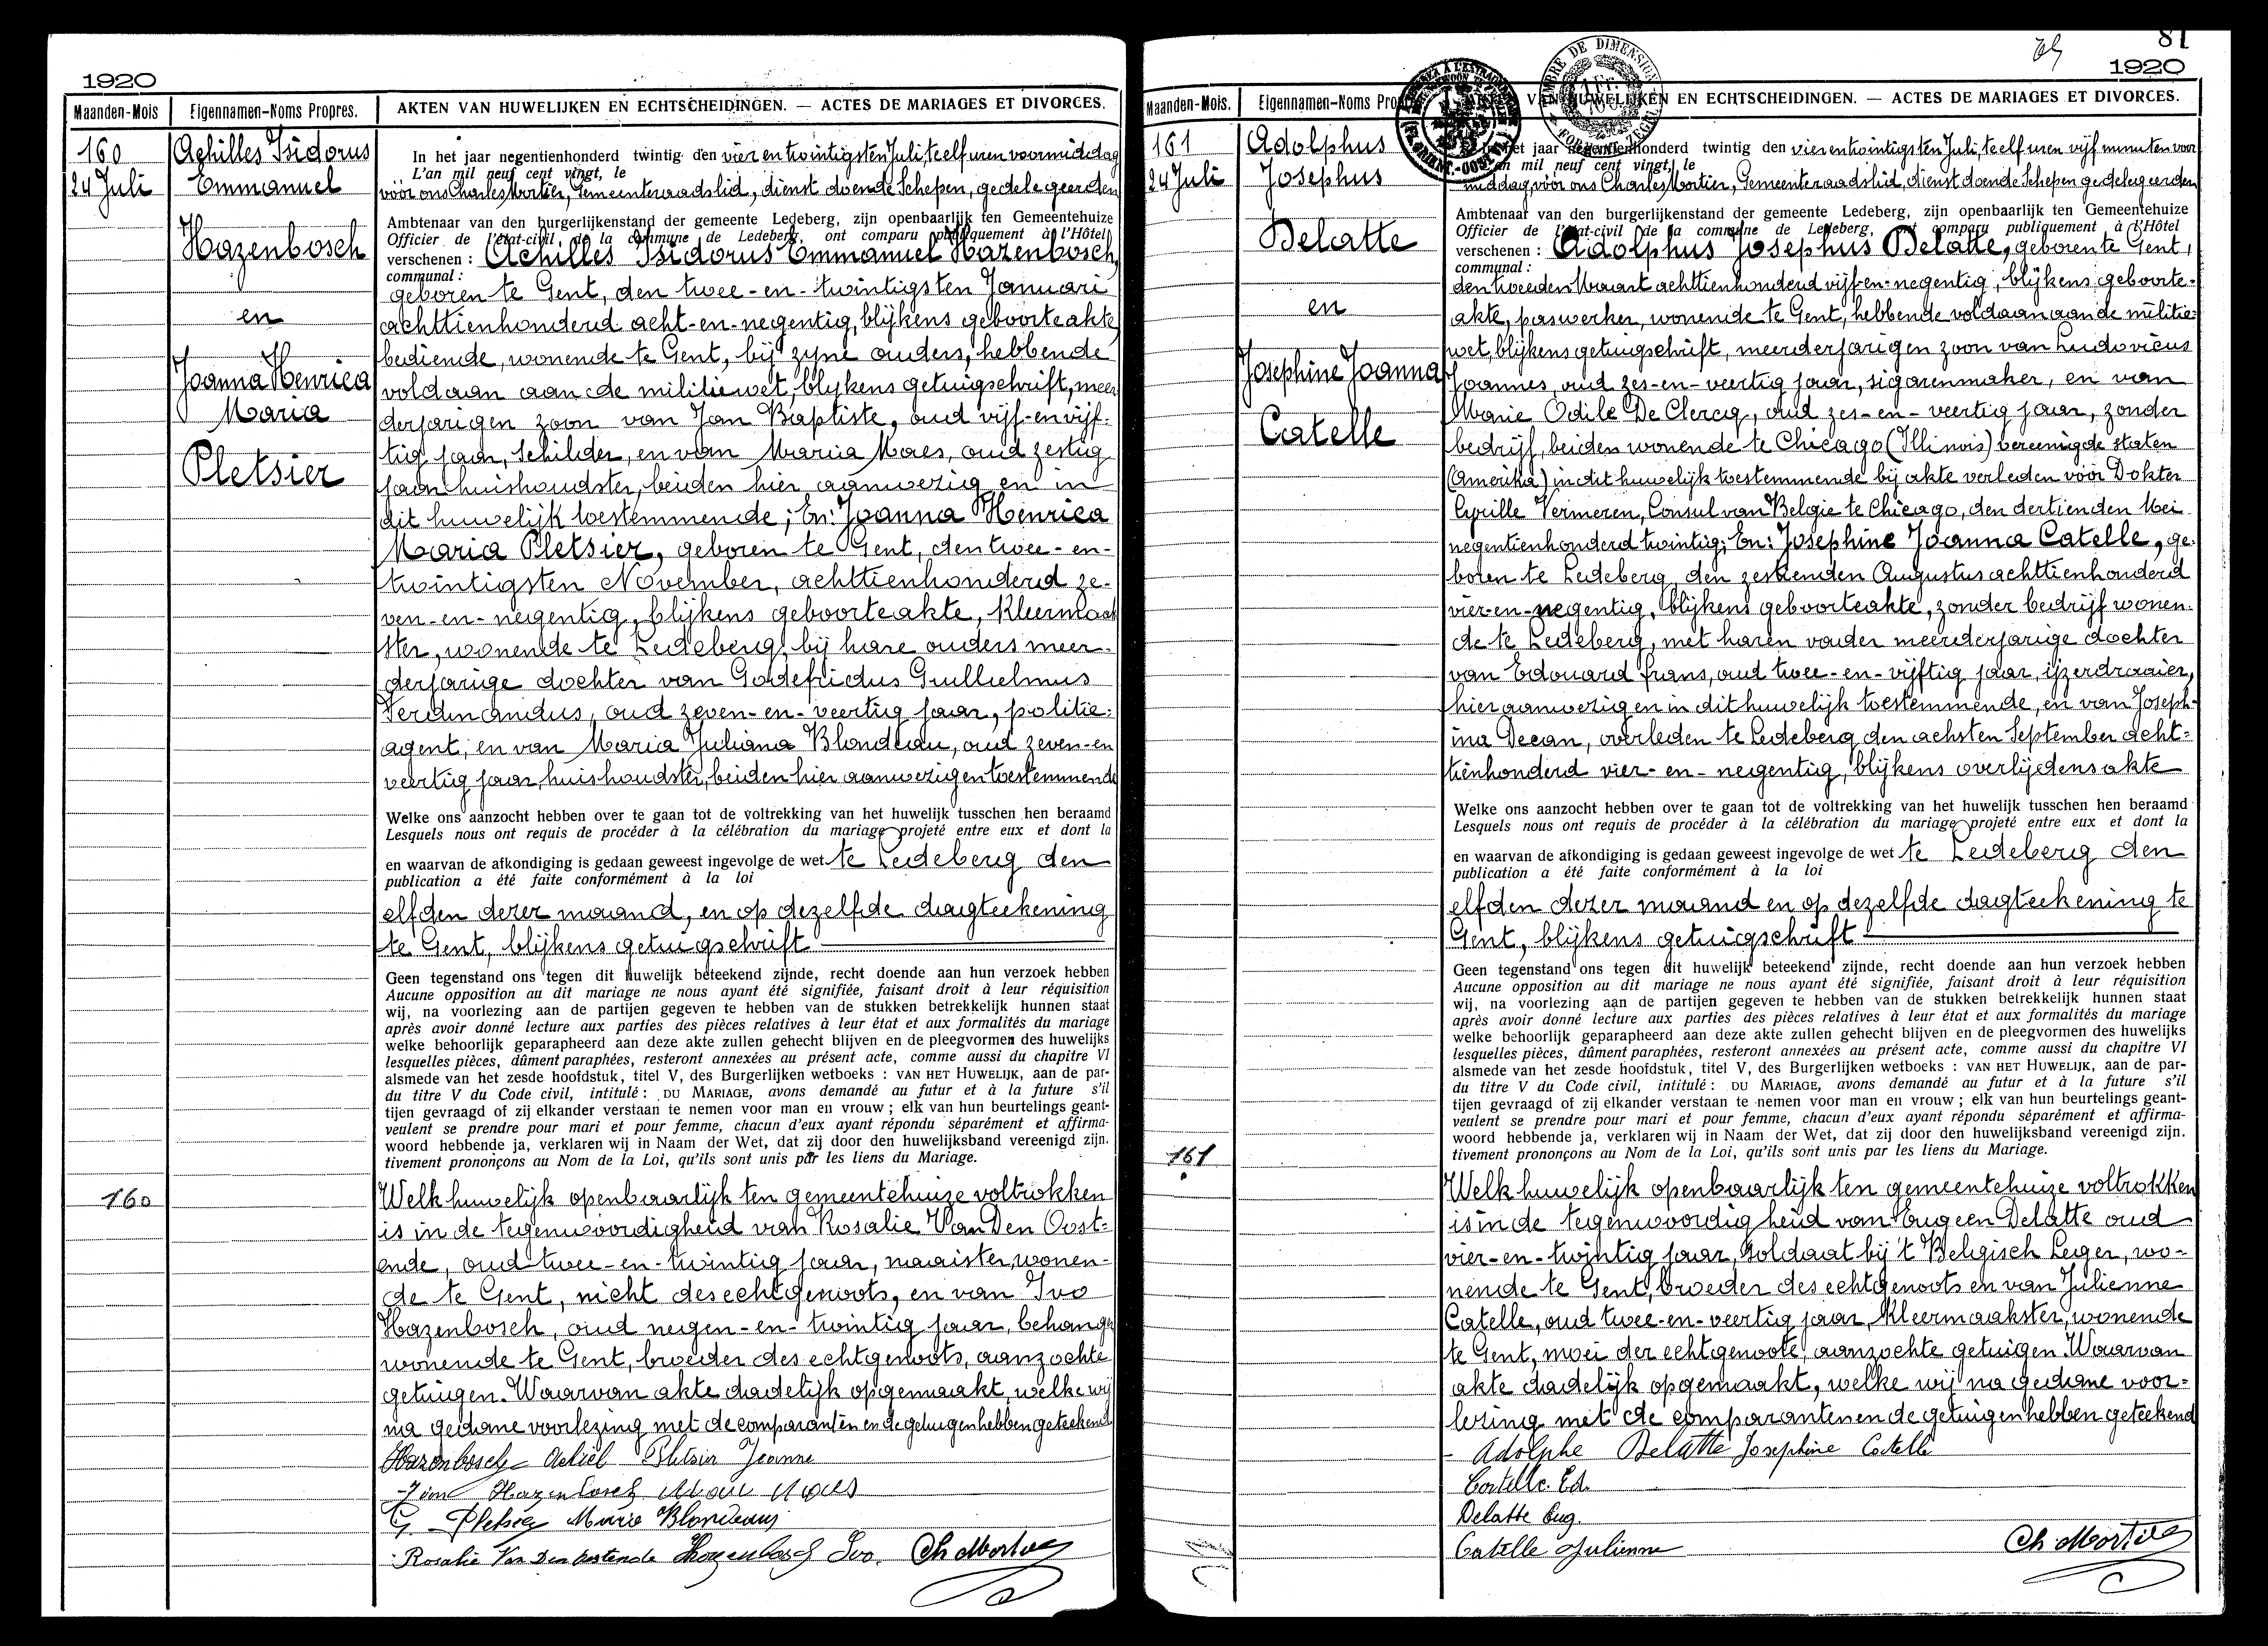 1920
Maanden-Mois
Eigennamen-Noms Propres.
AKTEN VAN HUWELIJKEN EN ECHTSCHEIDINGEN. — ACTES DE MARIAGES ET DIVORCES.
160
24 Juli
Achilles Isidorus
Emmanuel
Hazenbosch
en
Joanna Henrica
Maria
Pletsier
160
In het jaar negentienhonderd twintig den vier en twintigsten Juli, te elf uren voormiddag
L'an mil neuf cent vingt, le
vóór ons Charles Mortier, Gemeenteraadslid, dienst doende Schepen, gedelegeerden
Ambtenaar van den burgerlijkenstand der gemeente Ledeberg, zijn openbaarlijk ten Gemeentehuize
Officier de l'état-civil de la commune de Ledeberg, ont comparu publiquement à l'Hôtel
verschenen : Achilles Isidorus Emmanuel Hazenbosch,
communal :
geboren te Gent, den twee-en-twintigsten Januari
achttienhonderd acht-en-negentig, blijkens geboorteakte,
bediende, wonende te Gent, bij zyne ouders, hebbende
voldaan aan de militiewet, blykens getuigschrift, meer
derjarigen zoon van Jan Baptiste, oud vijf-en vijf-
tig jaar, schilder, en van Maria Maes, oud zestig
jaar huishoudster, beiden hier aanwezig en in
dit huwelijk toestemmende; En: Joanna Henrica
Maria Pletsier, geboren te Gent, den twee-en-
twintigsten November, achttienhonderd ze-
ven-en-negentig, blijkens geboorteakte, Kleermaak
ster, wonende te Ledeberg bij hare ouders meer-
derjarige dochter van Godefridus Guillielmus
Ferdinandus, oud zeven-en-veertig jaar, politie-
agent, en van Maria Juliana Blondeau, oud zeven-en
veertig jaar, huishoudster, beiden hier aanwezig en toestemmende
Welke ons aanzocht hebben over te gaan tot de voltrekking van het huwelijk tusschen hen beraamd
Lesquels nous ont requis de procéder à la célébration du mariage projeté entre eux et dont la
en waarvan de afkondiging is gedaan geweest ingevolge de wet te Ledeberg den
publication a été faite conformément à la loi
elfden dezer maand, en op dezelfde dagteekening
te Gent, blijkens getuigschrift
Geen tegenstand ons tegen dit huwelijk beteekend zijnde, recht doende aan hun verzoek hebben
Aucune opposition au dit mariage ne nous ayant été signifiée, faisant droit à leur réquisition
wij, na voorlezing aan de partijen gegeven te hebben van de stukken betrekkelijk hunnen staat
après avoir donné lecture aux parties des pièces relatives à leur état et aux formalités du mariage
welke behoorlijk geparapheerd aan deze akte zullen gehecht blijven en de pleegvormen des huwelijks
lesquelles pièces, dûment paraphées, resteront annexées au présent acte, comme aussi du chapitre VI
alsmede van het zesde hoofdstuk, titel V, des Burgerlijken wetboeks : VAN HET HUWELIJK, aan de par-
du titre V du Code civil, intitulé : DU MARIAGE, avons demandé au futur et à la future s'il
tijen gevraagd of zij elkander verstaan te nemen voor man en vrouw ; elk van hun beurtelings geant-
veulent se prendre pour mari et pour femme, chacun d'eux ayant répondu séparément et affirma-
woord hebbende ja, verklaren wij in Naam der Wet, dat zij door den huwelijksband vereenigd zijn.
tivement prononçons au Nom de la Loi, qu'ils sont unis par les liens du Mariage.
Welk huwelijk openbaarlijk ten gemeentehuize voltrokken
is in de tegenwoordigheid van Rosalie Van Den Oost-
ende, oud twee-en-twintig jaar, naaister, wonen-
de te Gent, nicht des echtgenoots, en van Ivo
Hazenbosch, oud negen-en-twintig jaar, behanger
wonende te Gent, broeder des echtgenoots, aanzochte
getuigen. Waarvan akte dadelijk opgemaakt, welke wij
na gedane voorlezing met de comparanten en de getuigen hebben geteekend
Hazenbosch Achiel Pletsier Jeanne
Hazenbosch Marie Maes
G. Pletsier Marie Blondeau
Rosalie Van Den Oostende Hazenbosch Ivo. Ch Mortier
81
1920
Maanden-Mois.
Eigennamen-Noms
VAN HUWELIJKEN EN ECHTSCHEIDINGEN. — ACTES DE MARIAGES ET DIVORCES.
161
24 Juli
Adolphus
Josephus
Delatte
en
Josephine Joanna
Catelle
161
het jaar negentienhonderd twintig den vier en twintigsten Juli, te elf uren vijf minuten voor
an mil neuf cent vingt, le
middag, vóór ons Charles Mortier, Gemeenteraadslid, dienst doende Schepen gedelegeerden
Ambtenaar van den burgerlijkenstand der gemeente Ledeberg, zijn openbaarlijk ten Gemeentehuize
Officier de l'état-civil de la commune de Ledeberg, ont comparu publiquement à l'Hôtel
verschenen : Adolphus Josephus Delatte, geboren te Gent,
communal :
den tweeden Maart achttienhonderd vijf-en-negentig, blijkens geboorte-
akte, paswerker, wonende te Gent, hebbende voldaan aan de militie-
wet, blijkens getuigschrift, meerderjarigen zoon van Ludovicus
Joannes, oud zes-en-veertig jaar, sigarenmaker, en van
Marie Odile De Clercq, oud zes-en-veertig jaar, zonder
bedrijf, beiden wonende te Chicago (Illinois) vereenigde staten
(Amerika) in dit huwelijk toestemmende bij akte verleden vóór Dokter
Cyrille Vermeren, Consul van Belgie te Chicago, den dertienden Mei
negentienhonderd twintig; En: Josephine Joanna Catelle, ge-
boren te Ledeberg, den zestienden Augustus achttienhonderd
vier-en-negentig, blijkens geboorteakte, zonder bedrijf wonen-
de te Ledeberg, met haren vader meerderjarige dochter
van Edouard frans, oud twee-en-vijftig jaar, ijzerdraaier,
hier aanwezig en in dit huwelijk toestemmende, en van Joseph-
ina Decan, overleden te Ledeberg den achsten September acht-
tienhonderd vier-en-negentig, blijkens overlijdensakte
Welke ons aanzocht hebben over te gaan tot de voltrekking van het huwelijk tusschen hen beraamd
Lesquels nous ont requis de procéder à la célébration du mariage projeté entre eux et dont la
en waarvan de afkondiging is gedaan geweest ingevolge de wet te Ledeberg den
publication a été faite conformément à la loi
elfden dezer maand en op dezelfde dagteekening te
Gent, blijkens getuigschrift
Geen tegenstand ons tegen dit huwelijk beteekend zijnde, recht doende aan hun verzoek hebben
Aucune opposition au dit mariage ne nous ayant été signifiée, faisant droit à leur réquisition
wij, na voorlezing aan de partijen gegeven te hebben van de stukken betrekkelijk hunnen staat
après avoir donné lecture aux parties des pièces relatives à leur état et aux formalités du mariage
welke behoorlijk geparapheerd aan deze akte zullen gehecht blijven en de pleegvormen des huwelijks
lesquelles pièces, dûment paraphées, resteront annexées au présent acte, comme aussi du chapitre VI
alsmede van het zesde hoofdstuk, titel V, des Burgerlijken wetboeks : VAN HET HUWELIJK, aan de par-
du titre V du Code civil, intitulé : DU MARIAGE, avons demandé au futur et à la future s'il
tijen gevraagd of zij elkander verstaan te nemen voor man en vrouw ; elk van hun beurtelings geant-
veulent se prendre pour mari et pour femme, chacun d'eux ayant répondu séparément et affirma-
woord hebbende ja, verklaren wij in Naam der Wet, dat zij door den huwelijksband vereenigd zijn.
tivement prononçons au Nom de la Loi, qu'ils sont unis par les liens du Mariage.
Welk huwelijk openbaarlijk ten gemeentehuize voltrokken
is in de tegenwoordigheid van Eugeen Delatte oud
vier-en-twintig jaar, soldaat bij 't Belgisch Leger, wo-
nende te Gent, broeder des echtgenoots en van Julienne
Catelle, oud twee-en-veertig jaar, Kleermaakster, wonende
te Gent, moei der echtgenoote, aanzochte getuigen. Waarvan
akte dadelijk opgemaakt, welke wij na gedane voor-
lezing met de comparanten en de getuigen hebben geteekend
Adolphe Delatte Josephine Catelle
Catelle. Ed.
Delatte Eug.
Catelle Julienne Ch Mortier